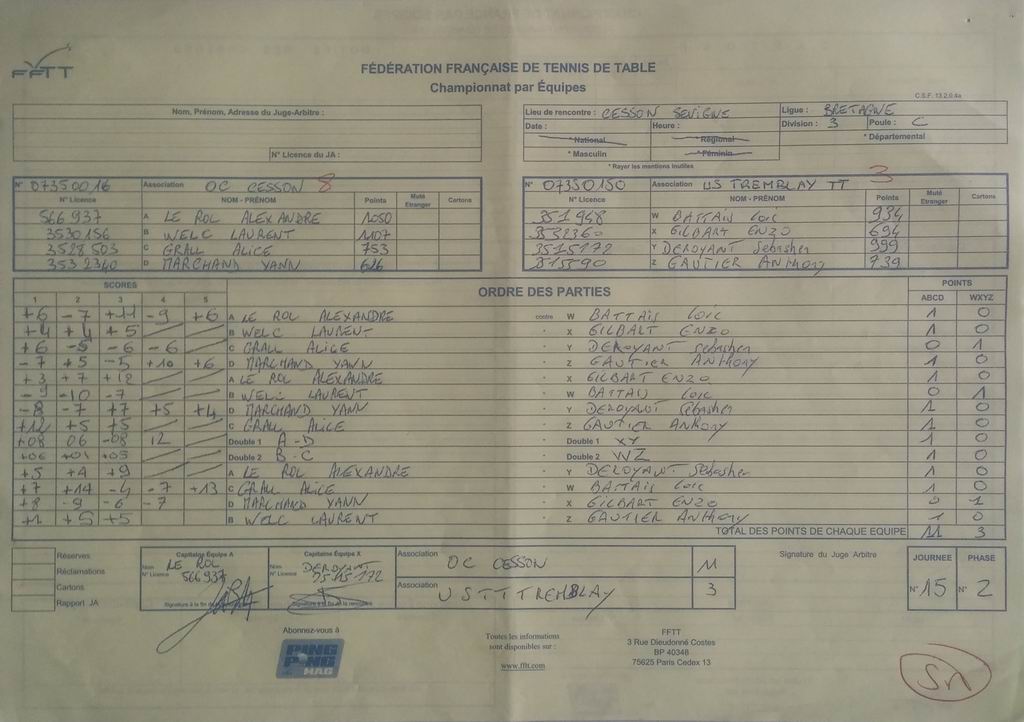 FFTT
FÉDÉRATION FRANÇAISE DE TENNIS DE TABLE
Championnat par Équipes
C.S.F. 13.2.0.4a
Nom, Prénom, Adresse du Juge-Arbitre :
N° Licence du JA :
Lieu de rencontre : CESSON SEVIGNE Ligue : BRETAGNE
Date : Heure : Division : 3 Poule : C
* National * Régional * Départemental
* Masculin * Féminin
* Rayer les mentions inutiles
N° 07350016 Association OC CESSON 8
N° Licence NOM - PRÉNOM Points Muté Etranger Cartons
566 937 A LE ROL ALEXANDRE 1050
3530156 B WELC LAURENT 1107
3528 503 C GRALL ALICE 753
353 2340 D MARCHAND YANN 626
N° 07350150 Association US TREMBLAY TT 3
N° Licence NOM - PRÉNOM Points Muté Etranger Cartons
351 948 W BATTAIS Loic 934
3532360 X GILBART ENZO 694
3515172 Y DEROYANT Sebastien 999
515590 Z GAUTIER ANThony 739
SCORES ORDRE DES PARTIES POINTS
1 2 3 4 5 ABCD WXYZ
+6 -7 +11 -9 +6 A LE ROL ALEXANDRE contre W BATTAIS Loic 1 0
+4 +4 +5 B WELC LAURENT X GILBART ENZO 1 0
+6 -5 -6 -6 C GRALL ALICE Y DEROYANT Sebastien 0 1
-7 +5 -5 +10 +6 D MARCHAND YANN Z GAUTIER ANThony 1 0
+3 +7 +12 A LE ROL ALEXANDRE X GILBART ENZO 1 0
-9 -10 -7 B WELC LAURENT W BATTAIS Loic 0 1
-8 -7 +7 +5 +4 D MARCHAND YANN Y DEROYANT Sebastien 1 0
+12 +5 +5 C GRALL ALICE Z GAUTIER ANThony 1 0
+08 06 -08 12 Double 1 A-D Double 1 XY 1 0
+06 +01 +05 Double 2 B-C Double 2 WZ 1 0
+5 +4 +9 A LE ROL ALEXANDRE Y DEROYANT Sebastien 1 0
+7 +14 -4 -7 +13 C GRALL ALICE W BATTAIS Loic 1 0
+8 -9 -6 -7 D MARCHAND YANN X GILBART ENZO 0 1
+1 +5 +5 B WELC LAURENT Z GAUTIER ANThony 1 0
TOTAL DES POINTS DE CHAQUE EQUIPE 11 3
Réserves
Réclamations
Cartons
Rapport JA
Capitaine Équipe A
Nom LE ROL
N° Licence 566937
Signature à la fin de la rencontre
Capitaine Équipe X
Nom DEROYANT
N° Licence 35 15 172
Signature à la fin de la rencontre
Association OC CESSON 11
Association USTTTREMBLAY 3
Signature du Juge Arbitre
JOURNEE PHASE
N° 15 N° 2
Abonnez-vous à
PING PONG MAG
Toutes les informations
sont disponibles sur :
www.fftt.com
FFTT
3 Rue Dieudonné Costes
BP 40348
75625 Paris Cedex 13